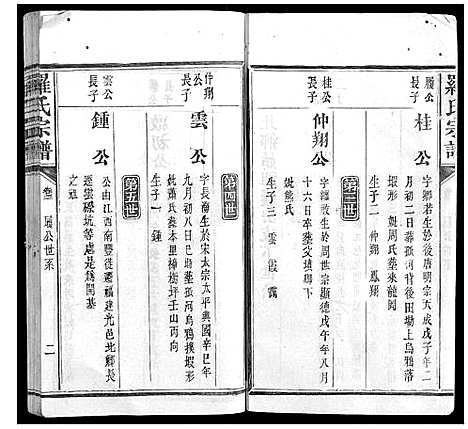 羅氏宗譜
履公長子
桂公
字鄉若生於後唐明宗天成戊子年二
月初二日葬孤河背後田場上烏鴉落
蝦形 娶周氏葬來龍岡
生子二 仲翔 鳳翔
第三世
桂公長子
仲翔公
字 生於周世宗顯德戊午年八月
十六日卒葬父墳墈下
娶熊氏
生子三 雲 霞 靄
第四世
仲翔公長子
雲公
字長 生於宋太宗太平興國辛巳年
九月初八日巳時葬孤河烏鴉撲蝦形
娶蕭氏葬本里樟樹坪壬山丙向
生子一 鍾
第五世
雲公長子
鍾公
公由江西南豐徙遷福建光邑北鄉長
逕雲磜坑等處是爲開基
之祖
羅氏宗譜
卷三 履公世系
二